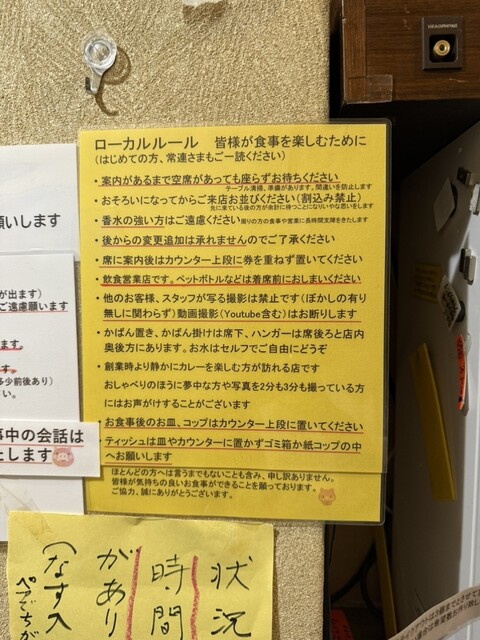 ローカルルール　皆様が食事を楽しむために
（はじめての方、常連さまもご一読ください）
・案内があるまで空席があっても座らずお待ちください
テーブル清掃、準備があります。間違いを防止します
・おそろいになってからご来店お並びください（割込み禁止）
先に来ている後の方が会計に待つことになりいやな思いをします
・香水の強い方はご遠慮ください 周りの方の食事や営業に長時間支障をきたします
・後からの変更追加は承れませんのでご了承ください
・席に案内後はカウンター上段に券を重ねず置いてください
・飲食営業店です。ペットボトルなどは着席前におしまいください
・他のお客様、スタッフが写る撮影は禁止です（ぼかしの有り
無しに関わらず）動画撮影（Youtube含む）はお断りします
・かばん置き、かばん掛けは席下、ハンガーは席後ろと店内
奥後方にあります。お水はセルフでご自由にどうぞ
・創業時より静かにカレーを楽しむ方が訪れる店です
おしゃべりのほうに夢中な方や写真を2分も3分も撮っている方
にはお声がけすることがございます
・お食事後のお皿、コップはカウンター上段に置いてください
・ティッシュは皿やカウンターに置かずゴミ箱か紙コップの中
へお願いします
ほとんどの方へは言うまでもないことも含み、申し訳ありません。
皆様が気持ちの良いお食事ができることを願っております。
ご協力、誠にありがとうございます。
願いします
が出ます）
ご遠慮願います
ます。
す。
多少前後あり）
さい。
事中の会話は
たします
状況
時間
があり
（なす入